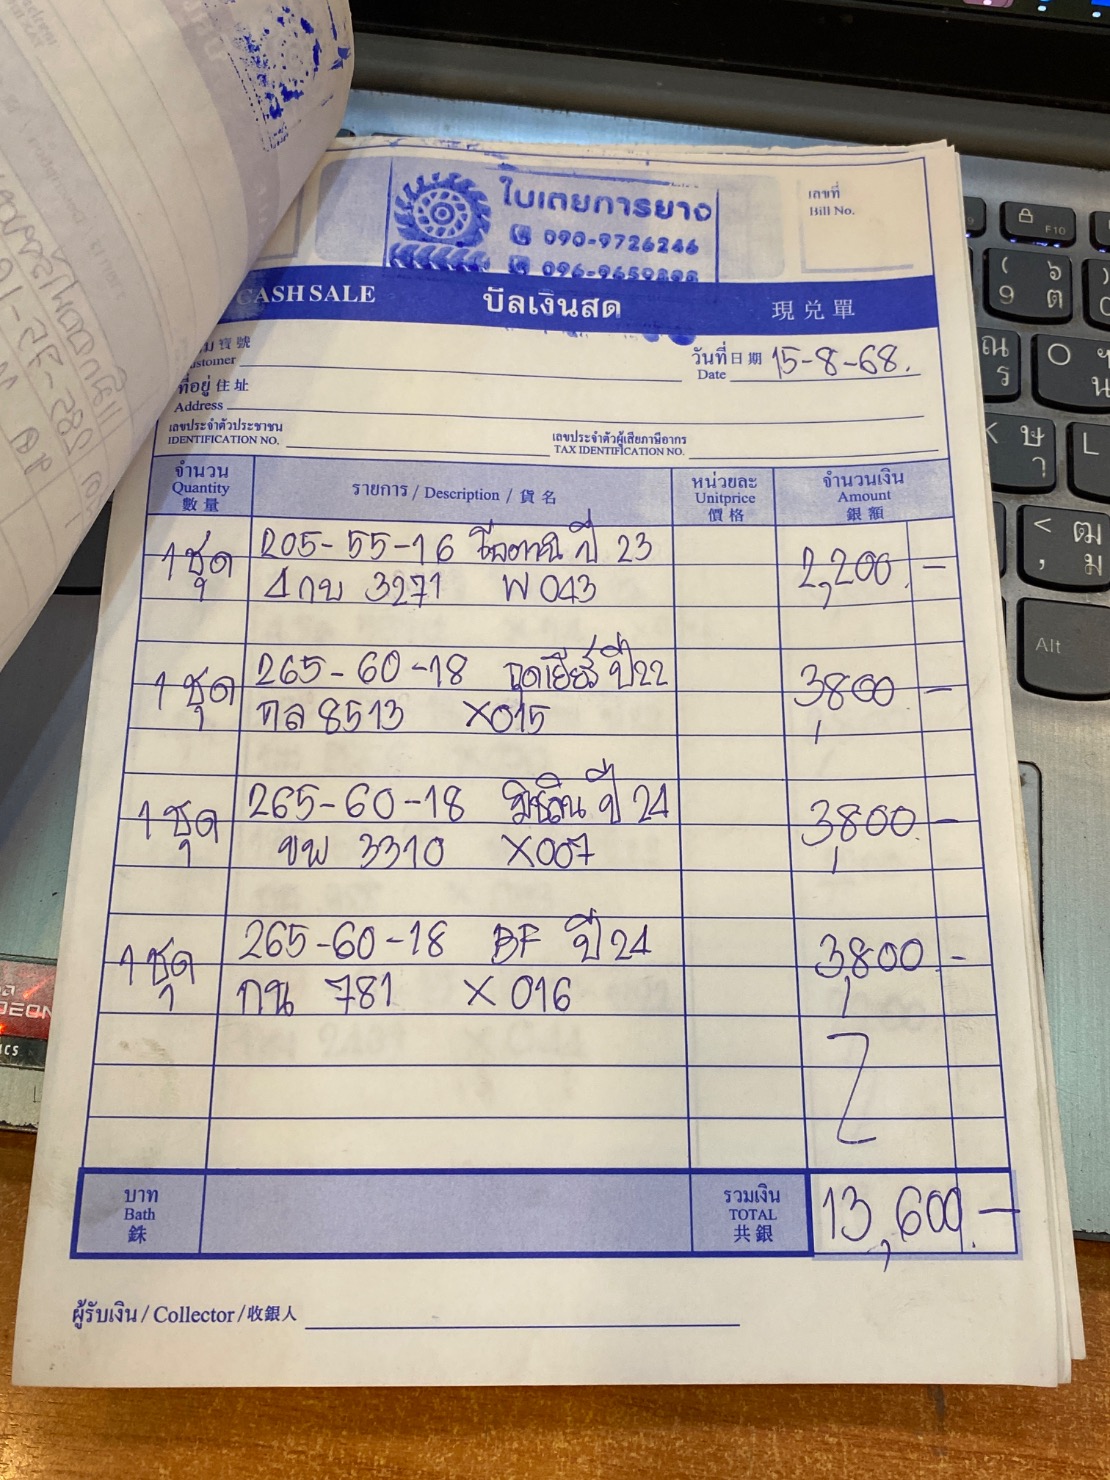 ใบเตยการยาง
090-9726246
096-9659898
เลขที่
Bill No.
CASH SALE บิลเงินสด 現兌單
寶號
วันที่ 日期 15-8-68.
Date
ที่อยู่ 住址
Address
เลขประจำตัวประชาชน
IDENTIFICATION NO.
เลขประจำตัวผู้เสียภาษีอากร
TAX IDENTIFICATION NO.
จำนวน
Quantity
數量
รายการ / Description / 貨名
หน่วยละ
Unitprice
價格
จำนวนเงิน
Amount
銀額
1 ชุด 205-55-16 ปี 23 2,200.-
3271 W043
1 ชุด 265-60-18 กูดเยียร์ ปี 22 3,800.-
กล 8513 X015
1 ชุด 265-60-18 มิชลิน ปี 24 3,800.-
ขพ 3310 X007
1 ชุด 265-60-18 BF ปี 24 3,800.-
กน 781 X016
บาท
Bath
銖
รวมเงิน
TOTAL
共銀
13,600.-
ผู้รับเงิน / Collector / 收銀人
F10
Alt